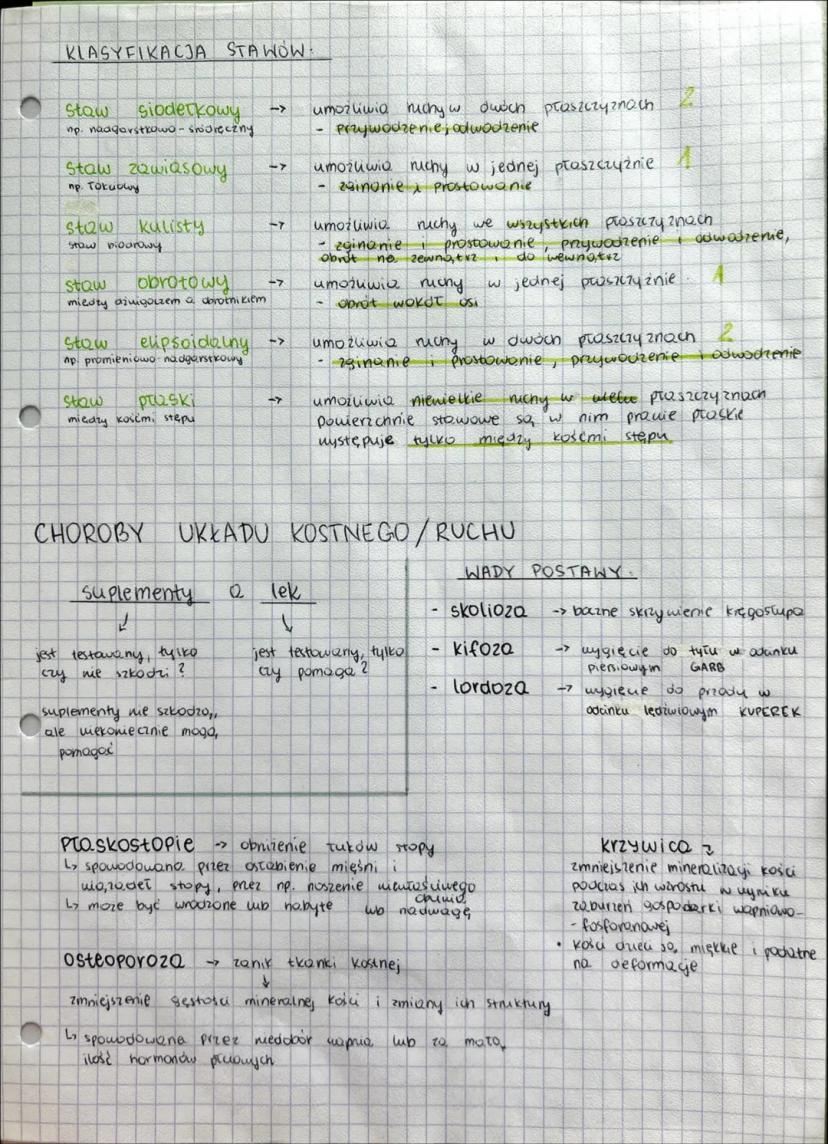 KLASYFIKACJA STAWÓW:
staw siodełkowy -> umożliwia ruchy w dwóch płaszczyznach 2
np. nadgarstkowo-śródręczny - przywodzenie i odwodzenie
staw zawiasowy -> umożliwia ruchy w jednej płaszczyźnie 1
np. łokciowy - zginanie i prostowanie
staw kulisty -> umożliwia ruchy we wszystkich płaszczyznach
staw biodrowy - zginanie i prostowanie, przywodzenie i odwodzenie,
obrót na zewnątrz i do wewnątrz
staw obrotowy -> umożliwia ruchy w jednej płaszczyźnie. 1
między dźwigaczem a obrotnikiem - obrót wokół osi
staw elipsoidalny -> umożliwia ruchy w dwóch płaszczyznach 2
np. promieniowo-nadgarstkowy - zginanie i prostowanie, przywodzenie i odwodzenie
staw płaski -> umożliwia niewielkie ruchy w wielu płaszczyznach
między kośćmi stępu powierzchnie stawowe są w nim prawie płaskie
występuje tylko między kośćmi stępu
CHOROBY UKŁADU KOSTNEGO/RUCHU
suplementy a lek
jest testowany, tylko
czy nie szkodzi?
jest testowany, tylko
czy pomaga?
suplementy nie szkodzą,
ale niekoniecznie mogą
pomagać
WADY POSTAWY:
- skolioza -> boczne skrzywienie kręgosłupa
- kifoza -> wygięcie do tyłu w odcinku
piersiowym GARB
- lordoza -> wygięcie do przodu w
odcinku lędźwiowym KUPEREK
płaskostopie -> obniżenie łuków stopy
↳ spowodowana przez osłabienie mięśni i
więzadeł stopy, przez np. noszenie niewłaściwego
obuwia
↳ może być wrodzone lub nabyte lub nadwagę
osteoporoza -> zanik tkanki kostnej
zmniejszenie gęstości mineralnej kości i zmiany ich struktury
↳ spowodowana przez niedobór wapnia lub za małą
ilość hormonów płciowych
krzywica
zmniejszenie mineralizacji kości
podczas ich wzrostu w wyniku
zaburzeń gospodarki wapniowo-
-fosforanowej
• kości dzieci są miękkie i podatne
na deformacje